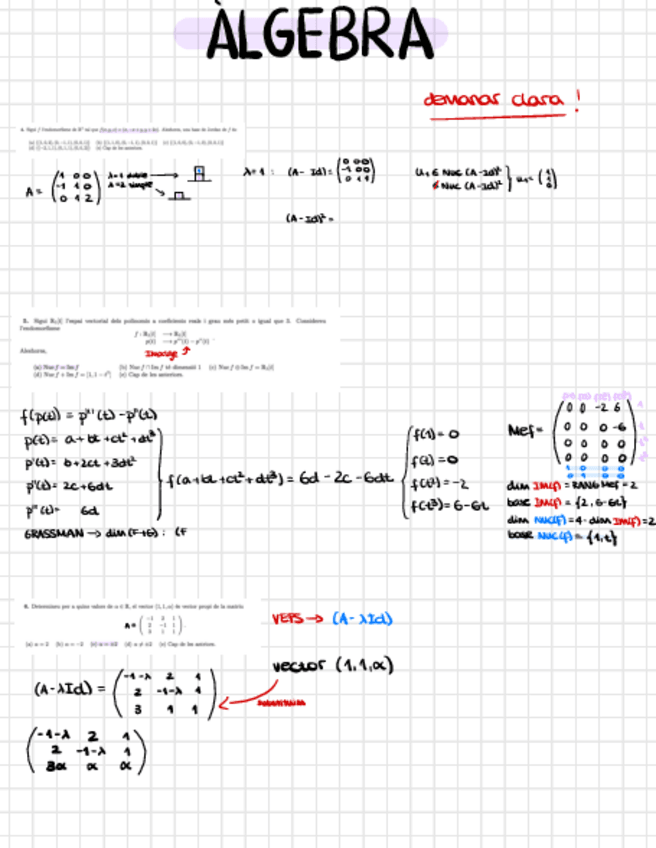 ÀLGEBRA
demanar clara !
A = ( 1 0 0
-1 1 0
0 1 2 )
λ=1 doble
λ=2 simple
λ=1 : (A- Id)= ( 0 0 0
-1 0 0
0 1 1 )
(A-Id)² =
5. Sigui R₃[t] l'espai vectorial dels polinomis a coeficients reals i grau més petit o igual que 3. Considereu
l'endomorfisme
f : R₃[t] → R₃[t]
p(t) → p'''(t) − p''(t)
Aleshores,
Imatge
(a) Nuc f = Im f (b) Nuc f ∩ Im f té dimensió 1 (c) Nuc f ⊕ Im f = R₃[t]
(e) Cap de les anteriors.
f(p(t)) = p'''(t) - p''(t)
p(t)= a+bt+ct²+dt³
p'(t)= b+2ct+3dt²
p''(t)= 2c+6dt
p'''(t)= 6d
f(a+bt+ct²+dt³) = 6d - 2c - 6dt
f(1)= 0
f(t)=0
f(t²)=-2
f(t³)=6-6t
Mef= ( 0 0 -2 6
0 0 0 -6
0 0 0 0
0 0 0 0 )
dim Im(f) = RANG Mef = 2
base Im(f) = {2, 6-6t}
dim NUC(f)=4-dim Im(f)=2
base NUC(f)= {1,t}
GRASSMAN → dim(F+G) : (F
6. Determineu per a quins valors de α ∈ R, el vector (1,1,α) és vector propi de la matriu
A = ( -1 2 1
2 -1 1
3 1 1 )
(a) α = 2 (b) α = −2 (c) α = ±2 (d) α ≠ ±2 (e) Cap de les anteriors.
VEPS → (A-λId)
vector (1,1,α)
(A-λId) = ( -1-λ 2 1
2 -1-λ 1
3 1 1 )
( -1-λ 2 1
2 -1-λ 1
3α α α )